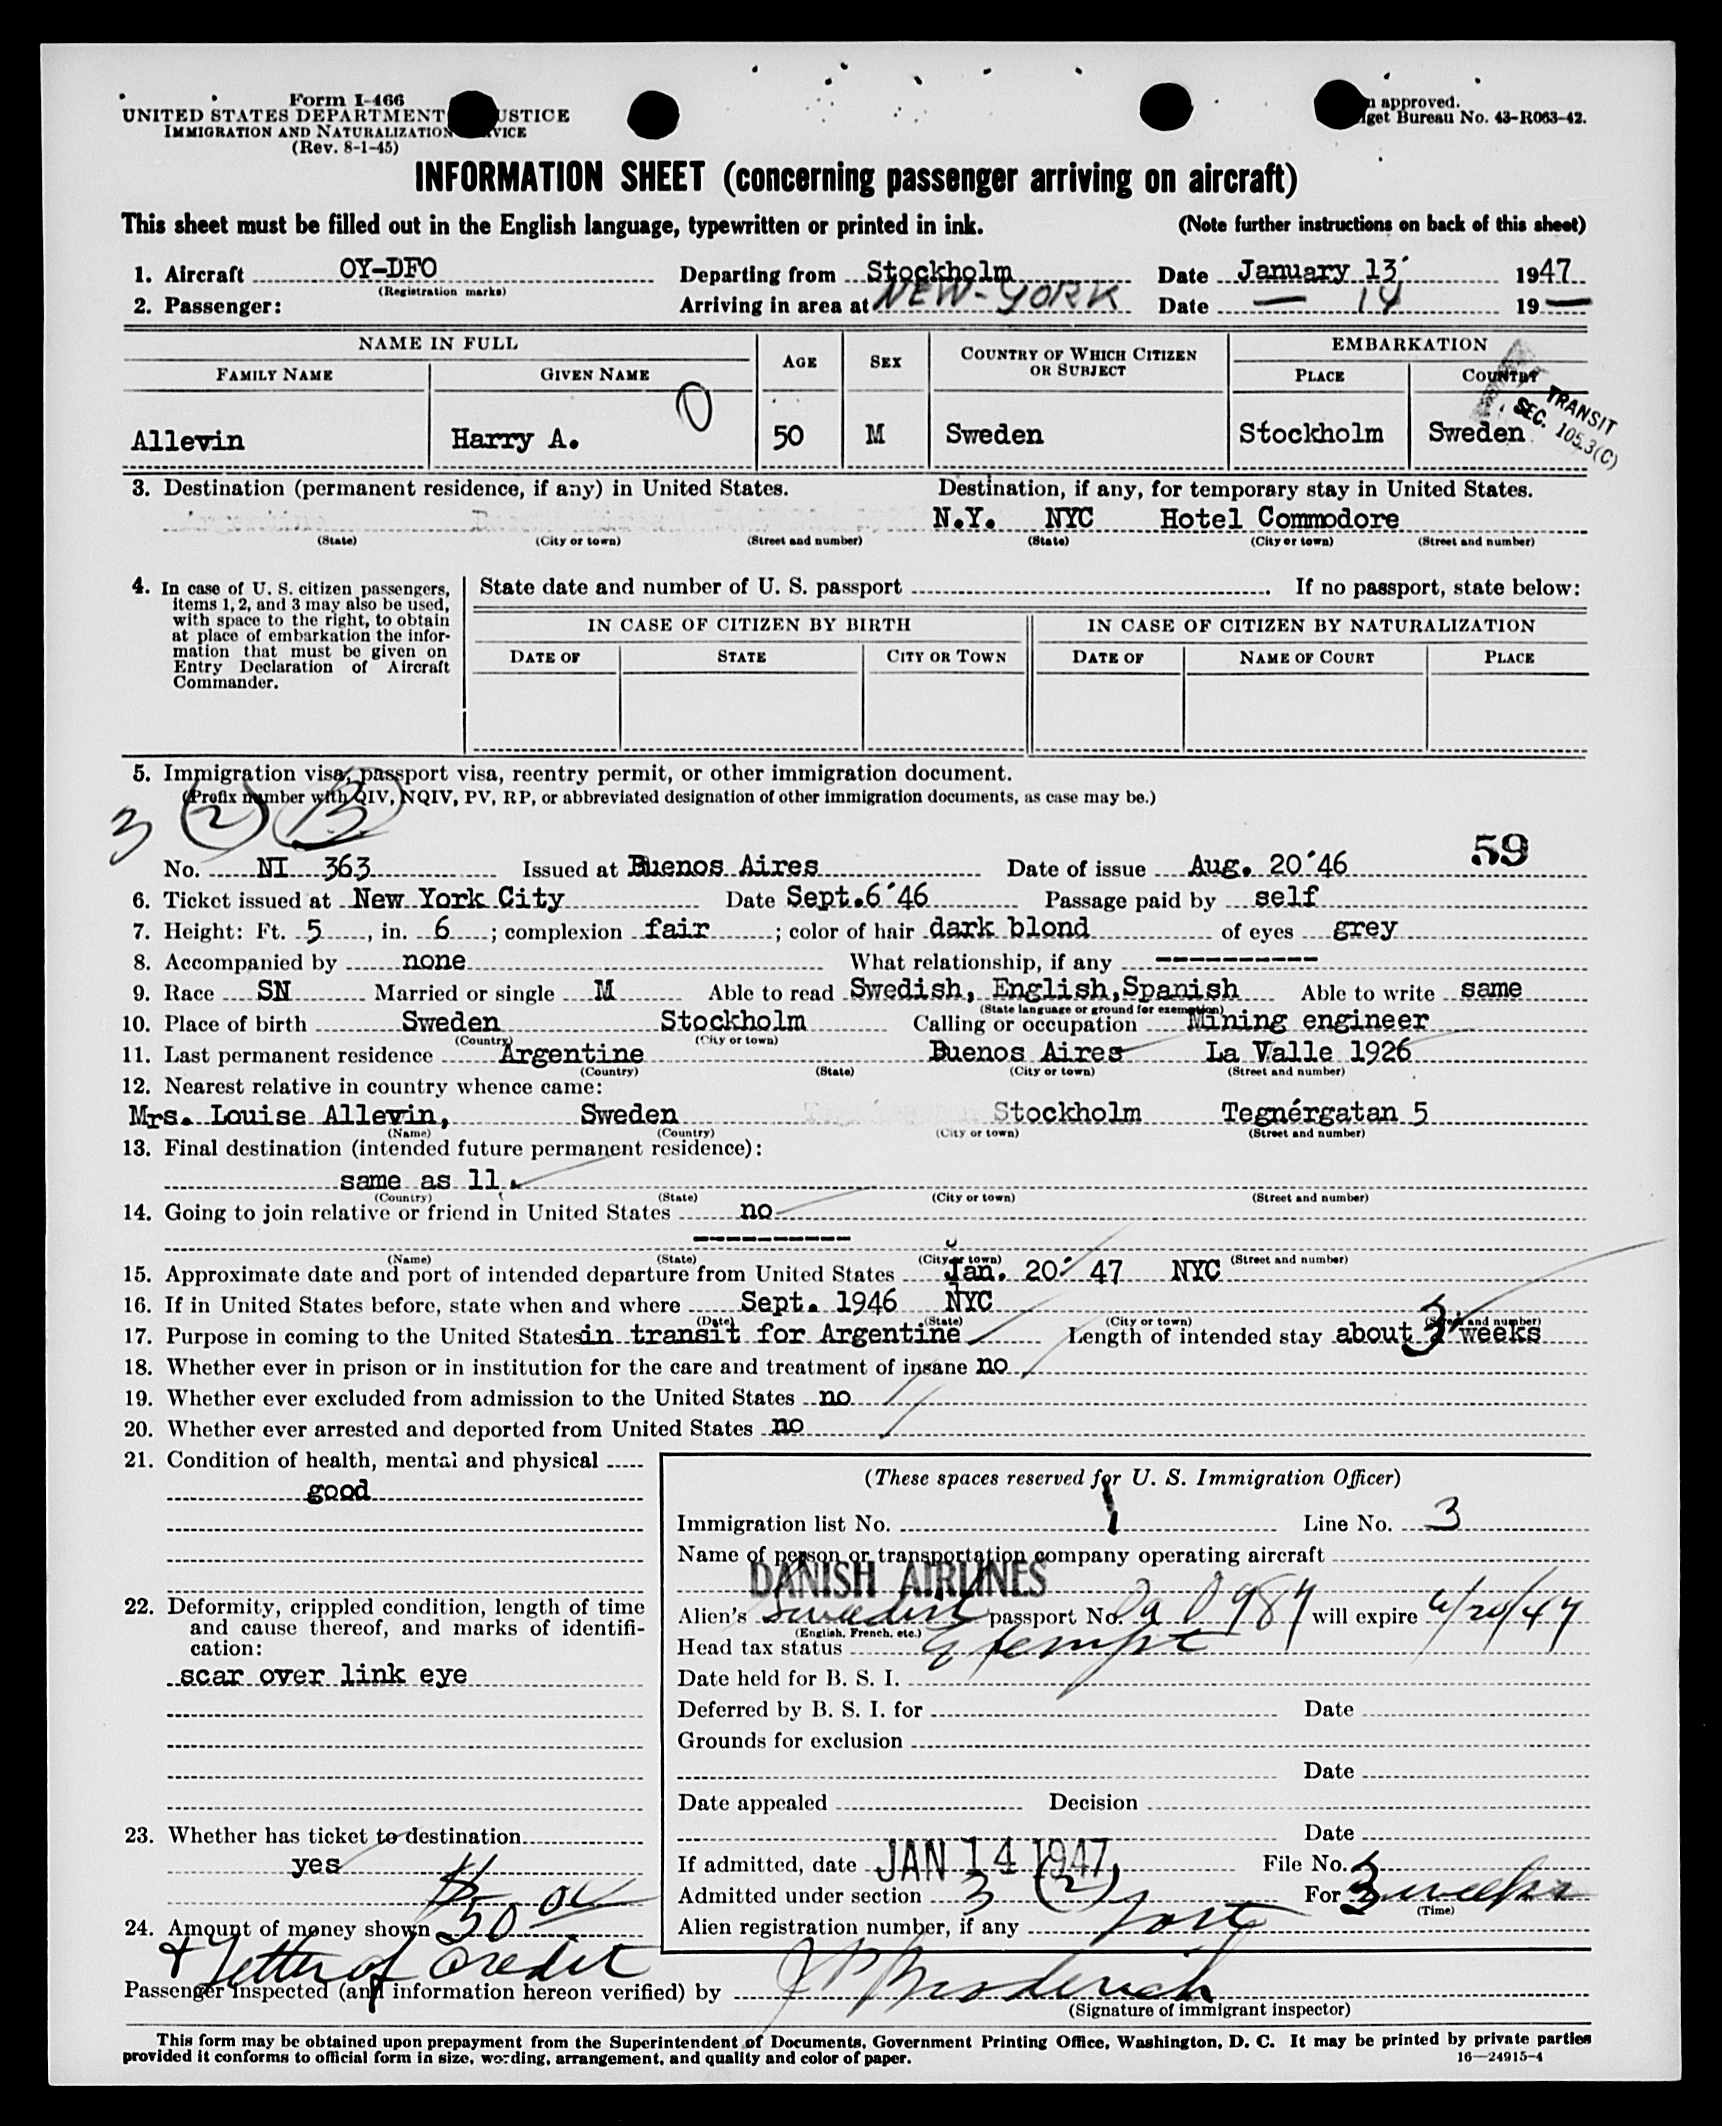 Form I-466
UNITED STATES DEPARTMENT USTICE
IMMIGRATION AND NATURALIZATION VICE
(Rev. 8-1-45)
n approved.
get Bureau No. 43-R063-42.
INFORMATION SHEET (concerning passenger arriving on aircraft)
This sheet must be filled out in the English language, typewritten or printed in ink. (Note further instructions on back of this sheet)
1. Aircraft OY-DFO Departing from Stockholm Date January 13 1947
(Registration marks)
2. Passenger: Arriving in area at NEW-YORK Date — 14 19 —
NAME IN FULL AGE SEX COUNTRY OF WHICH CITIZEN OR SUBJECT EMBARKATION
FAMILY NAME GIVEN NAME PLACE COUNTRY
TRANSIT
SEC. 105.3(C)
Allevin Harry A. 0 50 M Sweden Stockholm Sweden
3. Destination (permanent residence, if any) in United States. Destination, if any, for temporary stay in United States.
N.Y. NYC Hotel Commodore
(State) (City or town) (Street and number) (State) (City or town) (Street and number)
4. In case of U. S. citizen passengers, items 1, 2, and 3 may also be used, with space to the right, to obtain at place of embarkation the information that must be given on Entry Declaration of Aircraft Commander.
State date and number of U. S. passport If no passport, state below:
IN CASE OF CITIZEN BY BIRTH IN CASE OF CITIZEN BY NATURALIZATION
DATE OF STATE CITY OR TOWN DATE OF NAME OF COURT PLACE
5. Immigration visa, passport visa, reentry permit, or other immigration document.
(Prefix number with QIV, NQIV, PV, RP, or abbreviated designation of other immigration documents, as case may be.)
3 (2) B
59
No. NI 363 Issued at Buenos Aires Date of issue Aug. 20'46
6. Ticket issued at New York City Date Sept.6'46 Passage paid by self
7. Height: Ft. 5, in. 6; complexion fair; color of hair dark blond of eyes grey
8. Accompanied by none What relationship, if any ----------
9. Race SN Married or single M Able to read Swedish, English,Spanish Able to write same
(State language or ground for exemption)
10. Place of birth Sweden Stockholm Calling or occupation Mining engineer
(Country) (City or town)
11. Last permanent residence Argentine Buenos Aires La Valle 1926
(Country) (State) (City or town) (Street and number)
12. Nearest relative in country whence came:
Mrs. Louise Allevin, Sweden Stockholm Tegnérgatan 5
(Name) (Country) (City or town) (Street and number)
13. Final destination (intended future permanent residence):
same as 11.
(Country) (State) (City or town) (Street and number)
14. Going to join relative or friend in United States no
----------
(Name) (State) (City or town) (Street and number)
15. Approximate date and port of intended departure from United States Jan. 20 47 NYC
16. If in United States before, state when and where Sept. 1946 NYC
(Date) (State) (City or town) (Street and number)
17. Purpose in coming to the United States in transit for Argentine Length of intended stay about 3 weeks
18. Whether ever in prison or in institution for the care and treatment of insane no
19. Whether ever excluded from admission to the United States no
20. Whether ever arrested and deported from United States no
21. Condition of health, mental and physical
good
22. Deformity, crippled condition, length of time and cause thereof, and marks of identification:
scar over link eye
23. Whether has ticket to destination
yes
24. Amount of money shown $50 OK
+ Letter of Credit
(These spaces reserved for U. S. Immigration Officer)
Immigration list No. 1 Line No. 3
Name of person or transportation company operating aircraft
DANISH AIRLINES
Alien's Swedish passport No. 987 will expire 6/20/47
(English, French, etc.)
Head tax status Exempt
Date held for B. S. I.
Deferred by B. S. I. for Date
Grounds for exclusion
Date
Date appealed Decision
Date
If admitted, date JAN 14 1947 File No.
Admitted under section 3 (2) For 3 weeks
(Time)
Alien registration number, if any
Passenger inspected (and information hereon verified) by
(Signature of immigrant inspector)
This form may be obtained upon prepayment from the Superintendent of Documents, Government Printing Office, Washington, D. C. It may be printed by private parties
provided it conforms to official form in size, wording, arrangement, and quality and color of paper. 16—24915-4